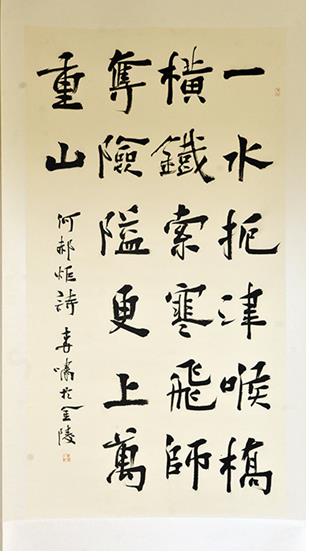 一水扼津喉橋
橫鐵索寒飛師
奪險隘更上萬
重山
何郝炬詩 李嘯於金陵